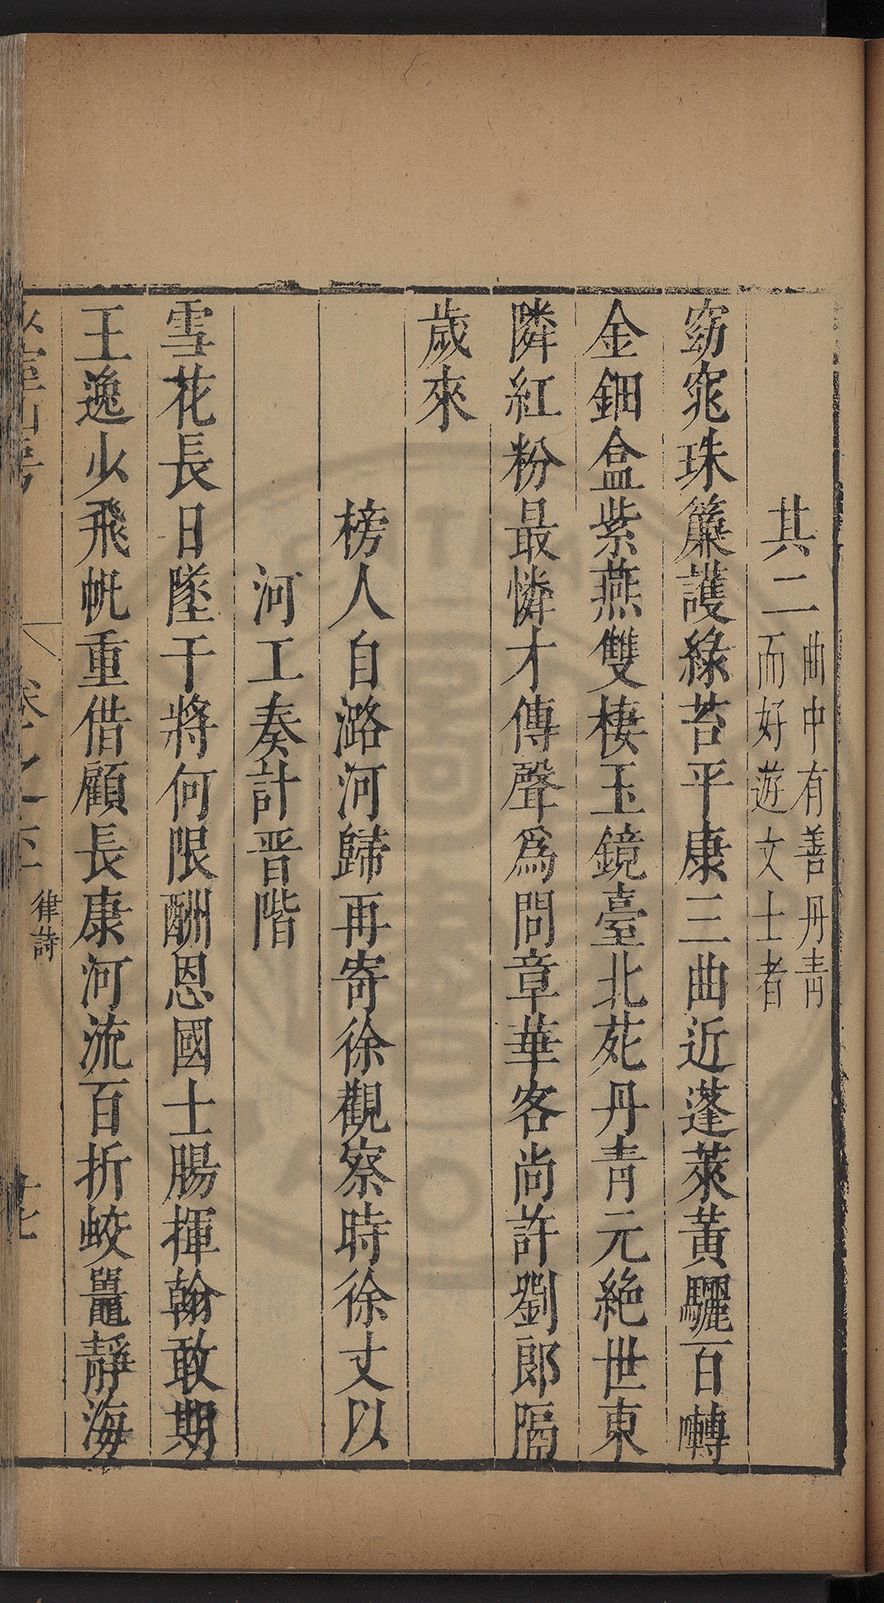 其二曲中有善丹青而好遊文士者
窈窕珠簾護綠苔平康三曲近蓬萊黃驪百囀
金鈿盒紫燕雙棲玉鏡臺北苑丹青元絕世東
隣紅粉最憐才傳聲爲問章華客尚許劉郎隔
歲來
榜人自潞河歸再寄徐觀察時徐丈以
河工奏計晉階
雪花長日墜干將何限酬恩國士腸揮翰敢期
王逸少飛帆重借顧長康河流百折蛟鼉靜海
山房
卷之五
律詩
十七